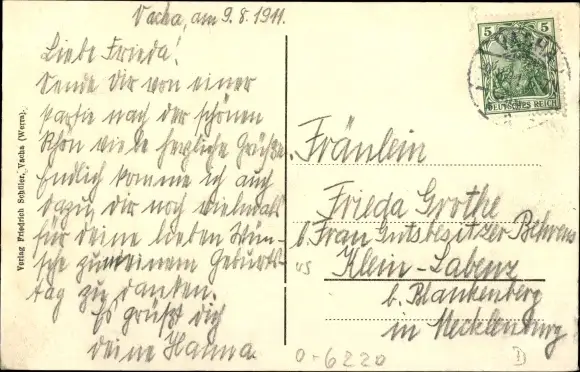 Vacha, am 9.8.1911.
Liebe Frieda!
Sende Dir von einer
Partie nach der schönen
Rhön viele herzliche Grüße.
Endlich komme ich auch
dazu, dir noch vielmals
für deine lieben Wün-
sche zu meinem Geburts-
tag zu danken.
Es grüßt dich
deine Hanna
Verlag Friedrich Schiller, Vacha (Werra).
5 5
VACHA
DEUTSCHES REICH
Fräulein
Frieda Grothe
b. Frau Gutsbesitzer Behrens
Klein-Labenz
b. Blankenberg
in Mecklenburg
0-6220
D